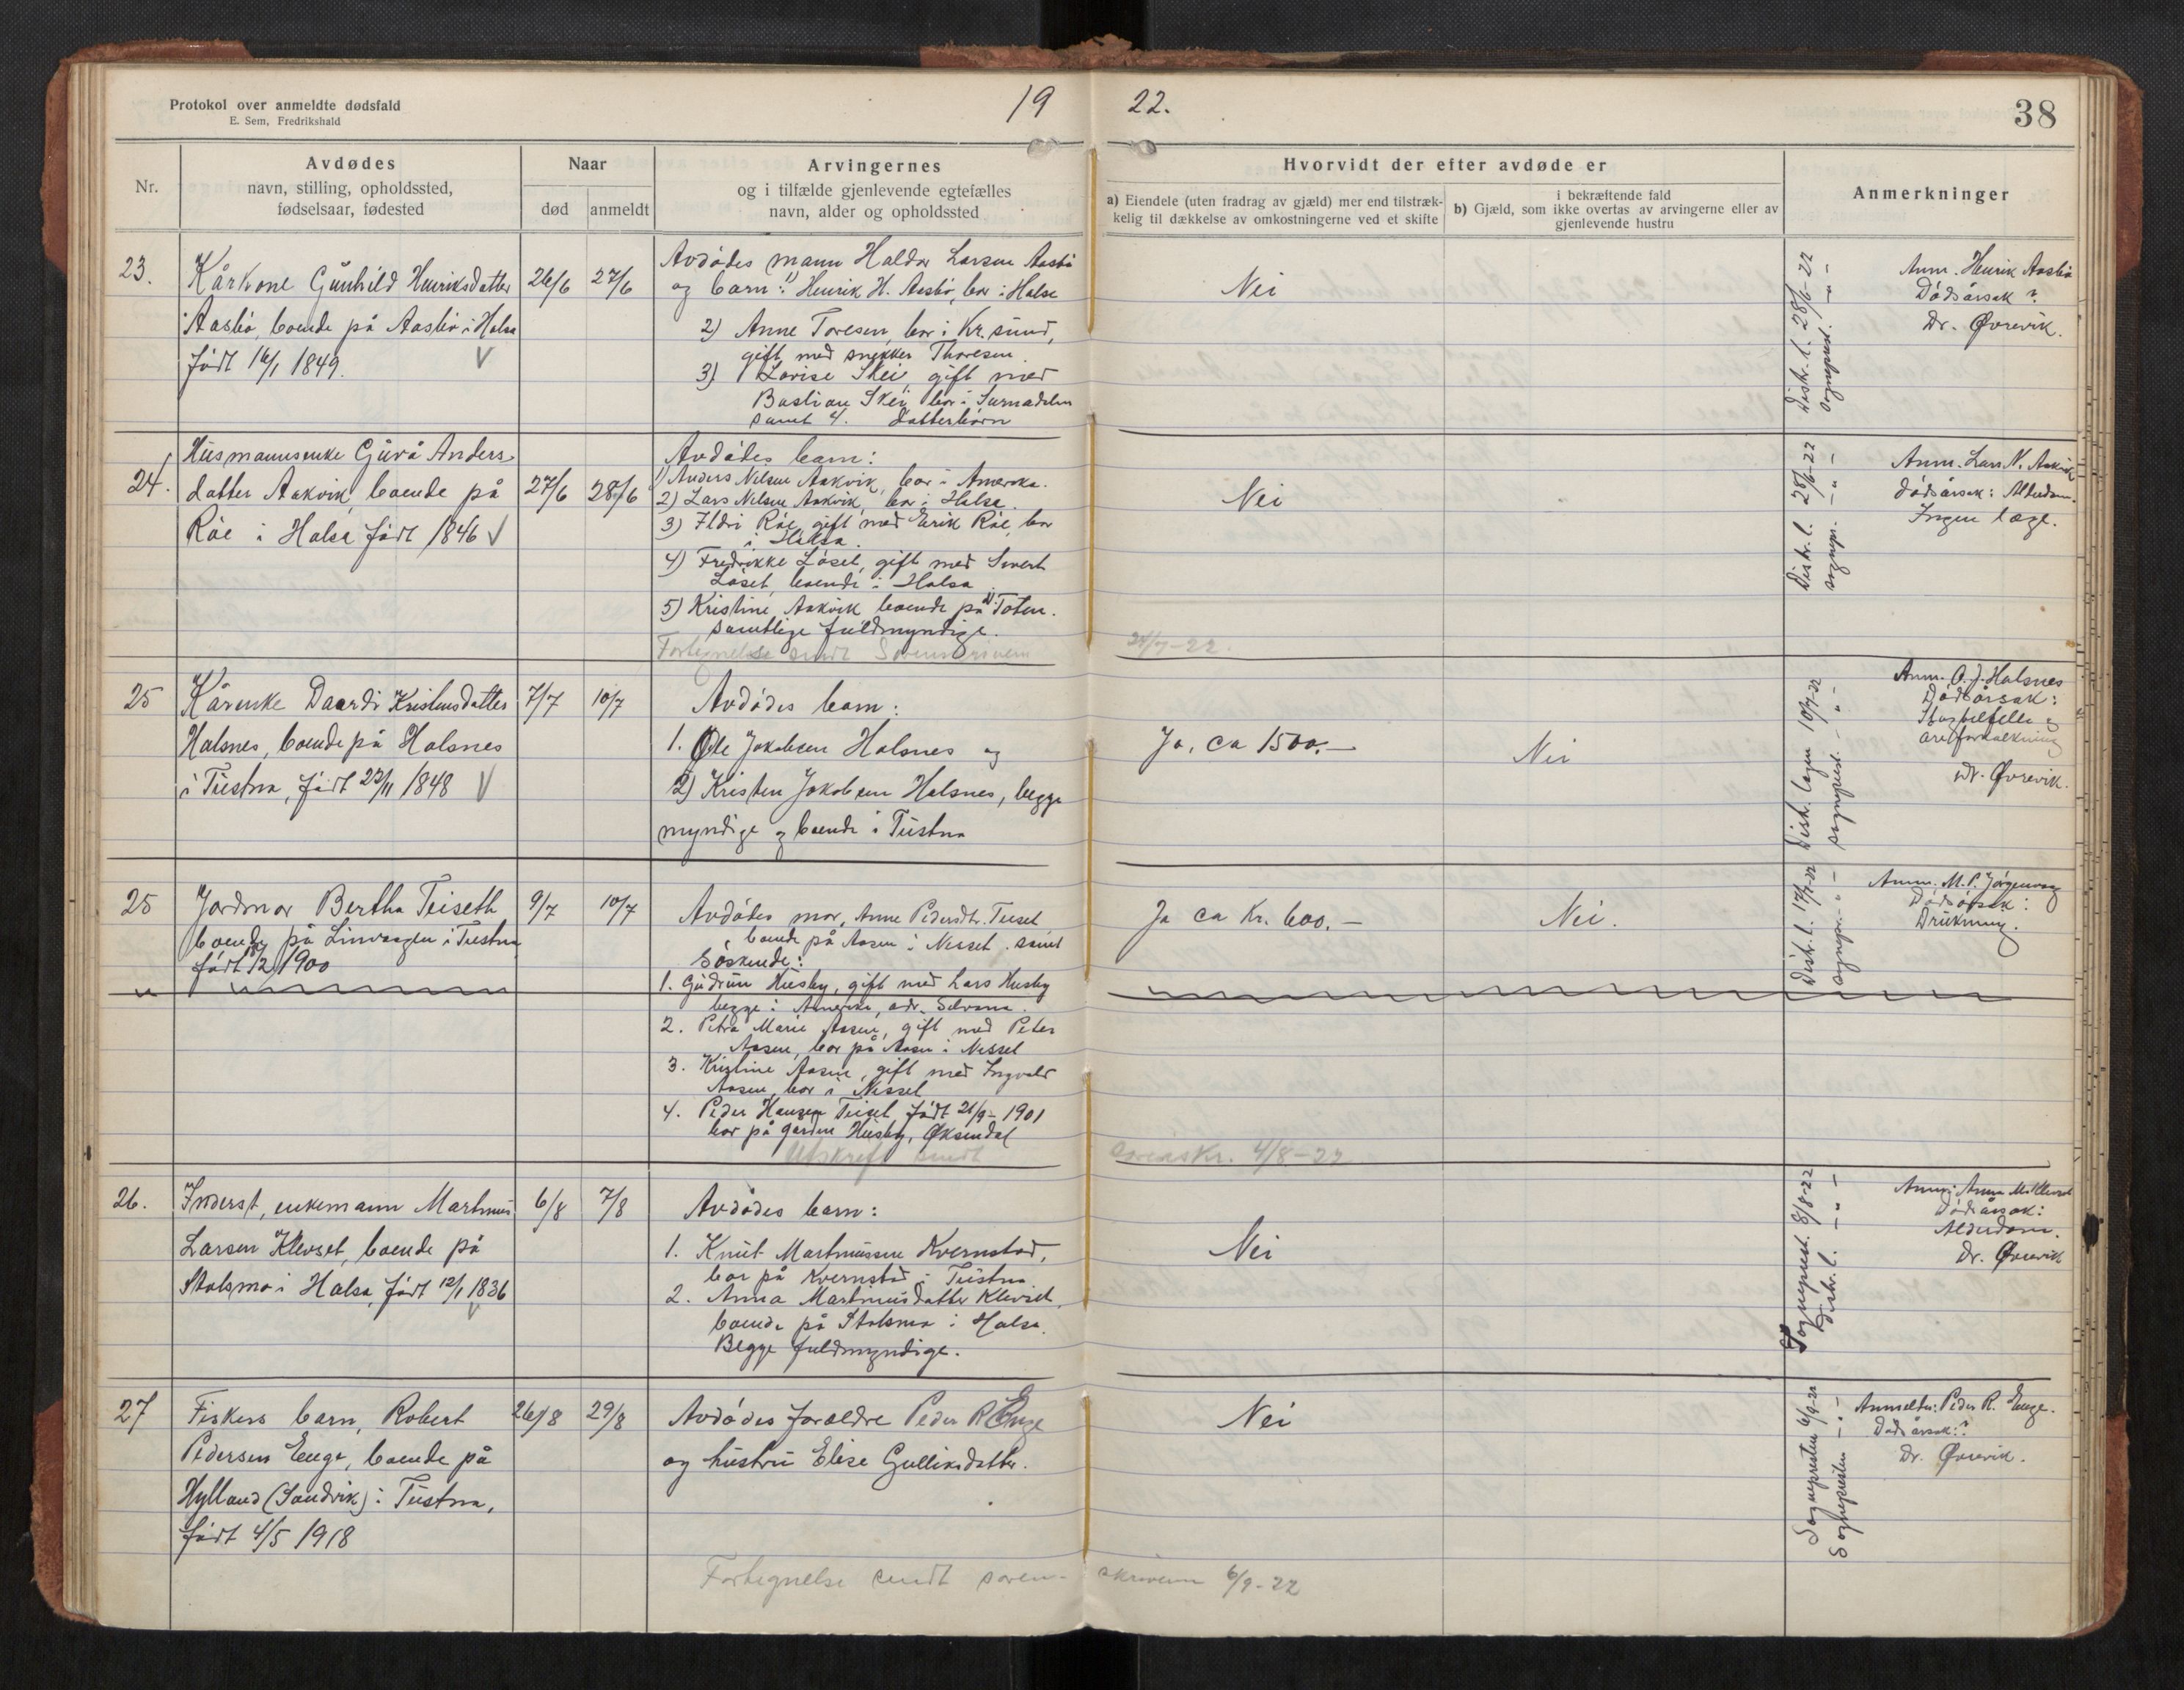 Protokol over anmeldte dødsfald
E. Sem, Fredrikshald
19 22.
38
Nr.
Avdødes
navn, stilling, opholdssted,
fødselsaar, fødested
Naar
død
anmeldt
Arvingernes
og i tilfælde gjenlevende egtefælles
navn, alder og opholdssted
Hvorvidt der efter avdøde er
a) Eiendele (uten fradrag av gjæld) mer end tilstræk-
kelig til dækkelse av omkostningerne ved et skifte
i bekræftende fald
b) Gjæld, som ikke overtas av arvingerne eller av
gjenlevende hustru
Anmerkninger
23.
Kårkone Gunhild Henriksdatter
Aasbø, boende på Aasbø i Halsa
født 16/1 1849.
26/6
27/6
Avdødes mann Haldor Larsen Aasbø
og barn: 1) Henrik H. Aasbø, bor i Halse
2) Anne Toresen, bor i Kr.sund,
gift med snekker Thoresen.
3) Lovise Skei, gift med
Bastian Skei, bor i Surnadalen
samt 4. Datterbørn
Nei
Distr. l. 28/6-22
Sogneprest. -"-
Anm. Henrik Aasbø
Dødsårsak ?
Dr. Øvrevik.
24.
Husmannsenke Gurå Anders-
datter Aakvik, boende på
Røe i Halsa født 1846
27/6
28/6
Avdødes barn:
1) Anders Nilsen Aakvik, bor i Amerika.
2) Lars Nilsen Aakvik, bor i Halse.
3) Ildri Røe, gift med Erik Røe, bor
i Halsa.
4) Fredrikke Løset, gift med Sivert
Løset, boende i Halsa
5) Kristine Aakvik boende på Toten.
samtlige fuldmyndige.
Fortegnelse sendt Sorenskriveren 24/7-22.
Nei
Distr. l. 28/6-22
sognepr. -"-
Anm. Lars N. Aakvik
dødsårsak: Alderdom.
Ingen læge.
25
Kårenke Daardi Kristensdatter
Halsnes, boende på Halsnes
i Tustna, født 22/11 1848
7/7
10/7
Avdødes barn:
1. Ole Jakobsen Halsnes og
2) Kristen Jakobsen Halsnes, begge
myndige og boende i Tustna
Ja, ca 1500.-
Nei
Distr. lægen 10/7-22
sogneprest. -"-
Anm. O. J. Halsnes
Dødsårsak:
åreforkalkning
Dr. Øvrevik.
25
Jordmor Bertha Teiseth
boende på Linvaagen i Tustna
født 1900
9/7
10/7
Avdødes mor, Anne Pedersdtr. Teiset
boende på Aasen i Nesset. samt
Søskende:
1. Gudrun Husby, gift med Lars Husby
begge i Amerika, adr.
2. Petra Marie Aasen, gift med Peter
Aasen, bor på Aasen i Nesset
3. Kristine Aasen, gift med Ingvald
Aasen, bor i Nesset
4. Peder Hansen Teiset, født 21/9-1901
bor på garden Husby, Øksendal
Utskrift sendt sorenskr. 4/8-22
Ja ca Kr. 600.-
Nei.
Distr. l. 17/7-22
sognepr. -"-
Anm. M. P. Jørgenvaag
Dødsårsak:
Drukning.
26.
Inderst, enkemann Martinus
Larsen Klevset, boende på
Stolsmo i Halsa, født 12/1 1836
6/8
7/8
Avdødes barn:
1. Knut Martinussen Kvernstad,
bor på Kvernstad i Tustna
2. Anna Martinusdatter Klevset,
boende på Stolsmo i Halsa.
Begge fuldmyndige.
Nei
Sogneprest. 8/8-22
Distr. l. -"-
Anm: Anna M. Klevset
Dødsårsak:
Alderdom.
Dr. Øvrevik
27
Fiskers barn, Robert
Pedersen Enge, boende på
Hylland (Sandvik) i Tustna,
født 4/5 1918
26/8
29/8
Avdødes foreldre Peder R Enge
og hustru Elise Gulliksdatter.
Nei
Sognepresten 6/9-22
Sognepresten -"-
Anmelder: Peder R. Enge.
Dødsårsak: ?
Dr. Øvrevik.
Fortegnelse sendt soren- skriveren 6/9-22